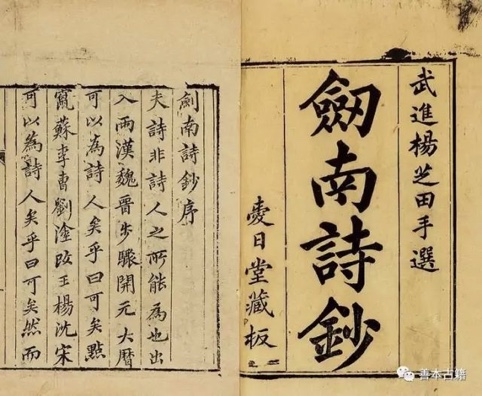 武進楊芝田手選
劒南詩鈔
愛日堂藏板
劍南詩鈔序
夫詩非詩人之所能為也出
入兩漢魏晉步驟開元大曆
可以為詩人矣乎曰可矣點
竄蘇李曹劉塗改王楊沈宋
可以為詩人矣乎曰可矣然而
善本古籍